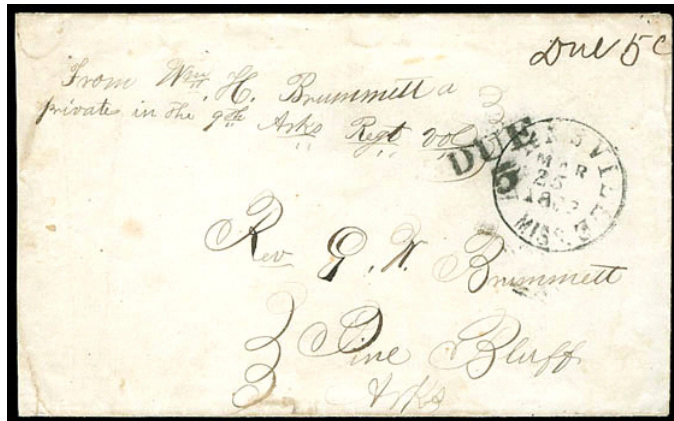 Due 5c
From Wm. H. Brummett a
private in the 9th Arks Regt vol
DUE
5
MAR
25
MISS.
Rev G. W. Brummett
Pine Bluff
Arks